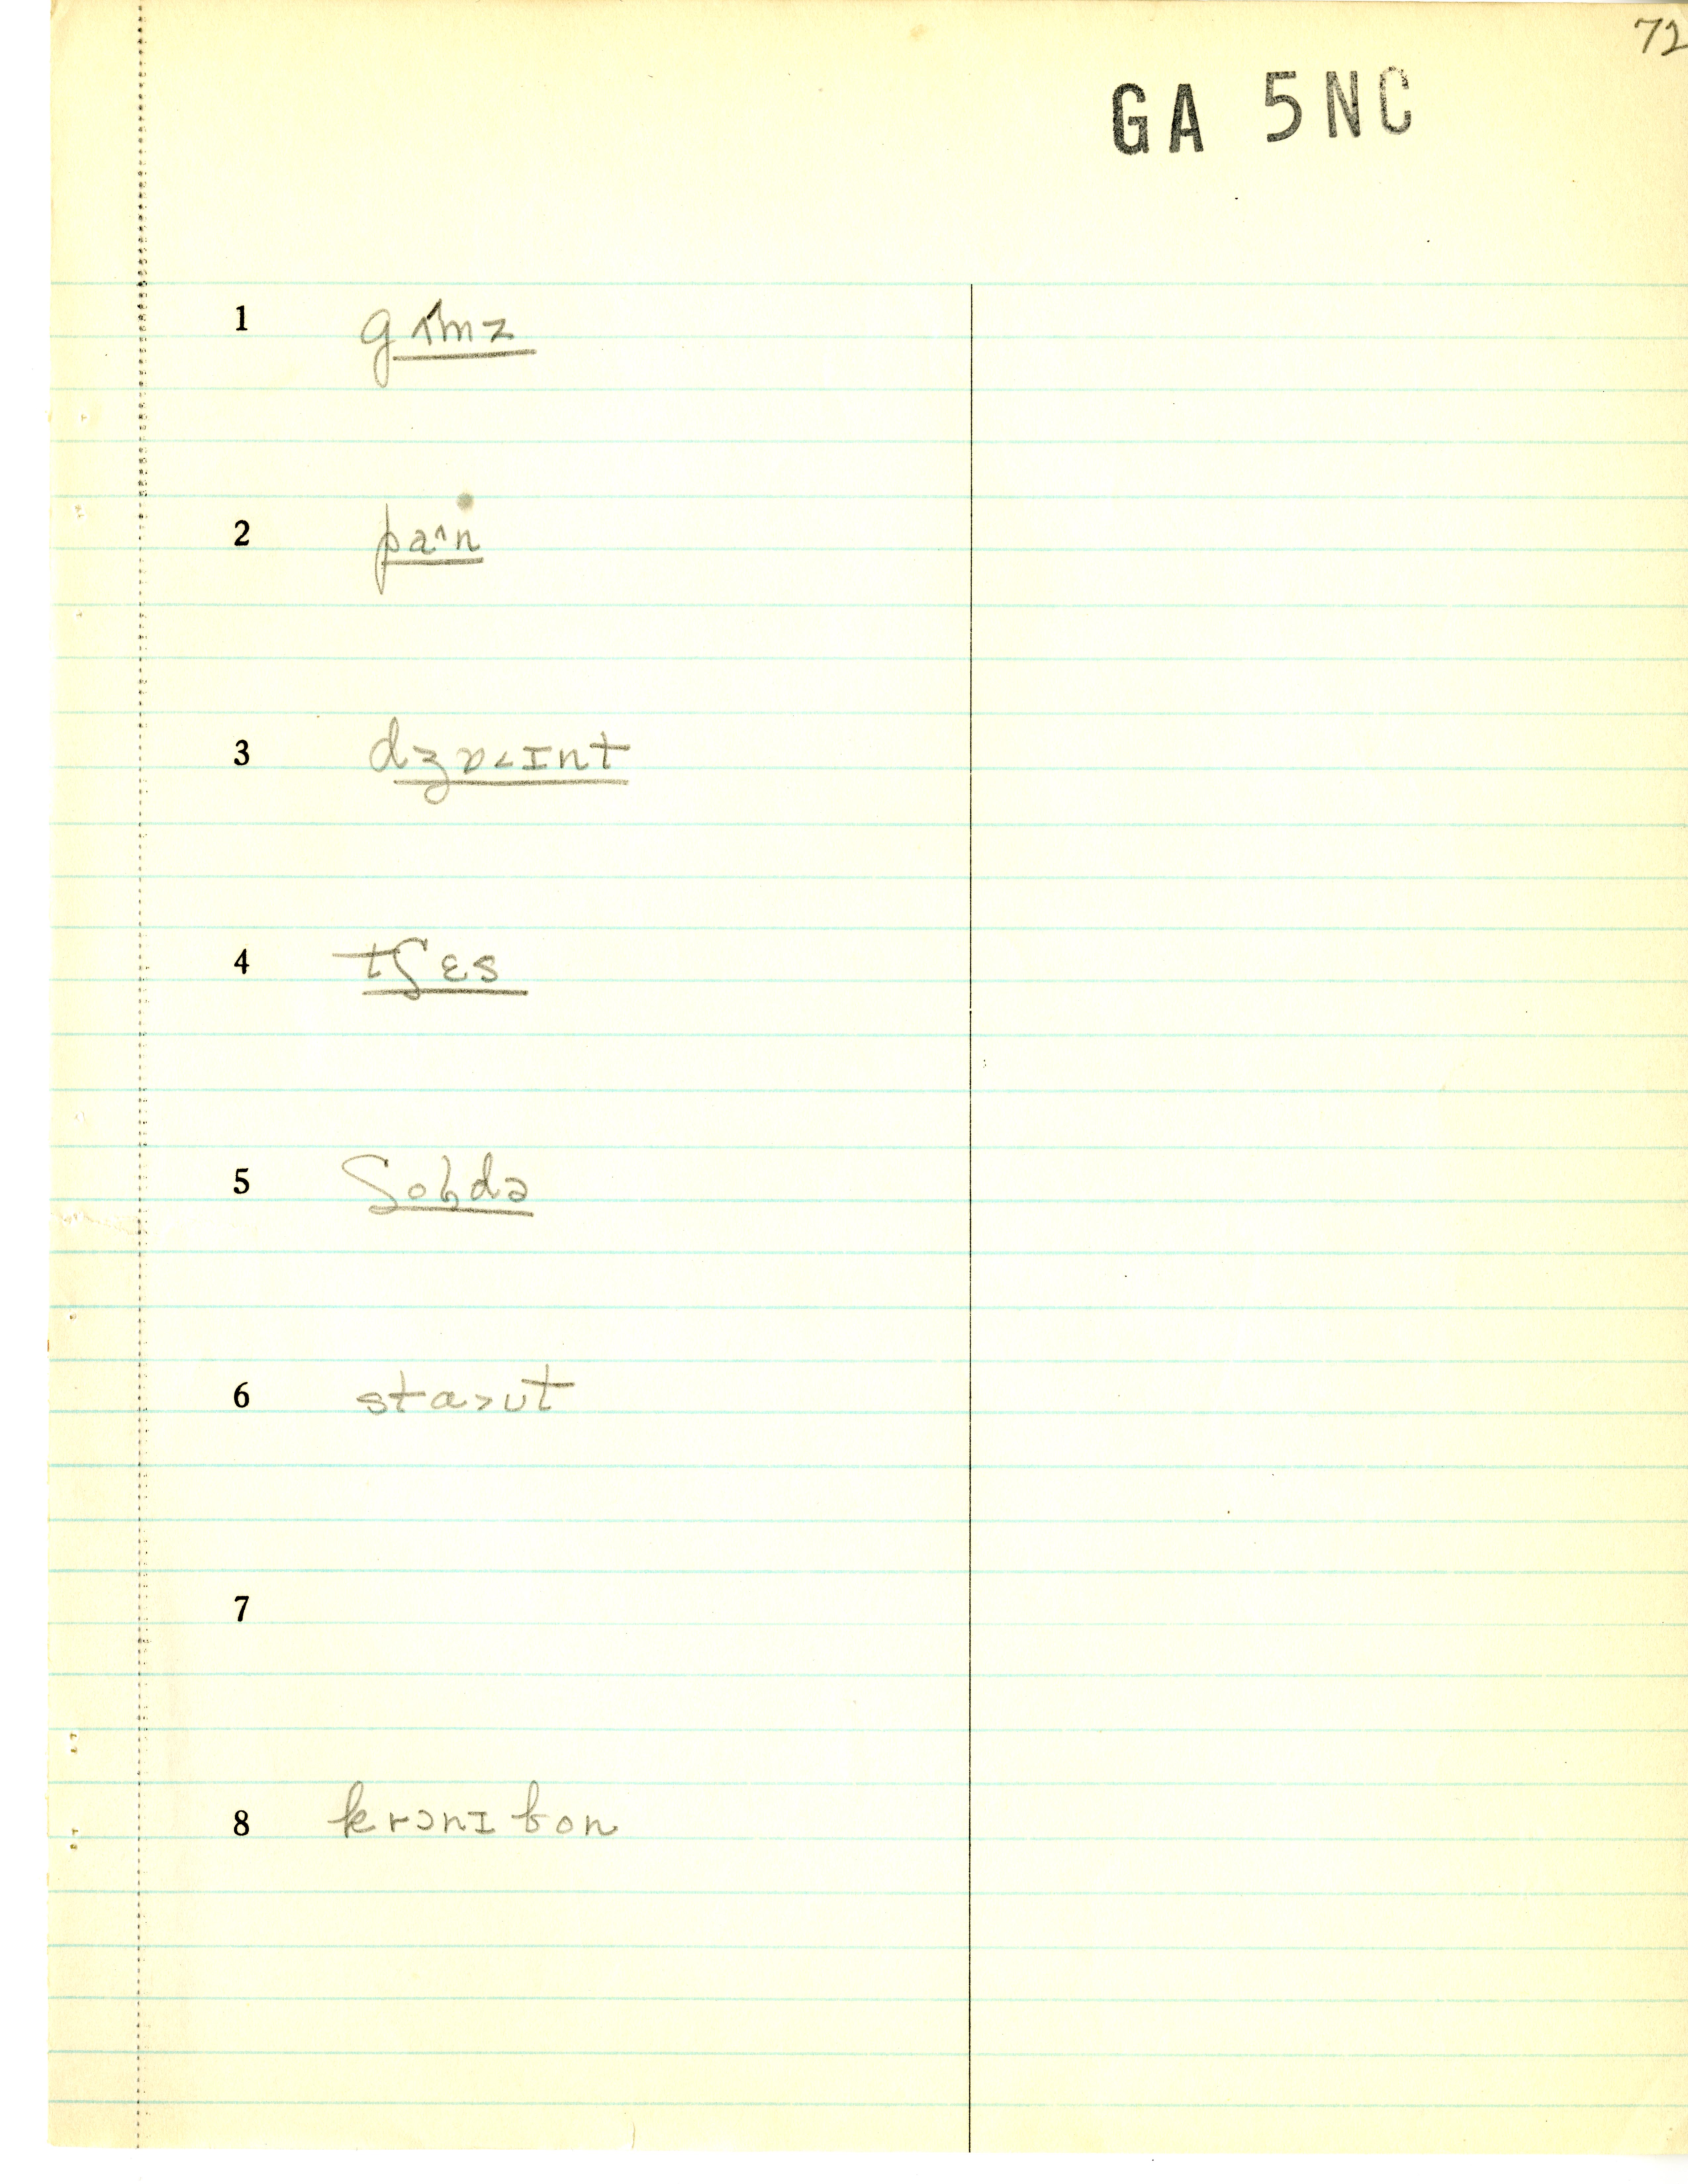 72
GA 5NC
1 gʌmz
2 pa^n
3 dʒɒ<ɪnt
4 tʃɛs
5 ʃoldə
6 sta>ʊt
7
8 krɔnɪ bon